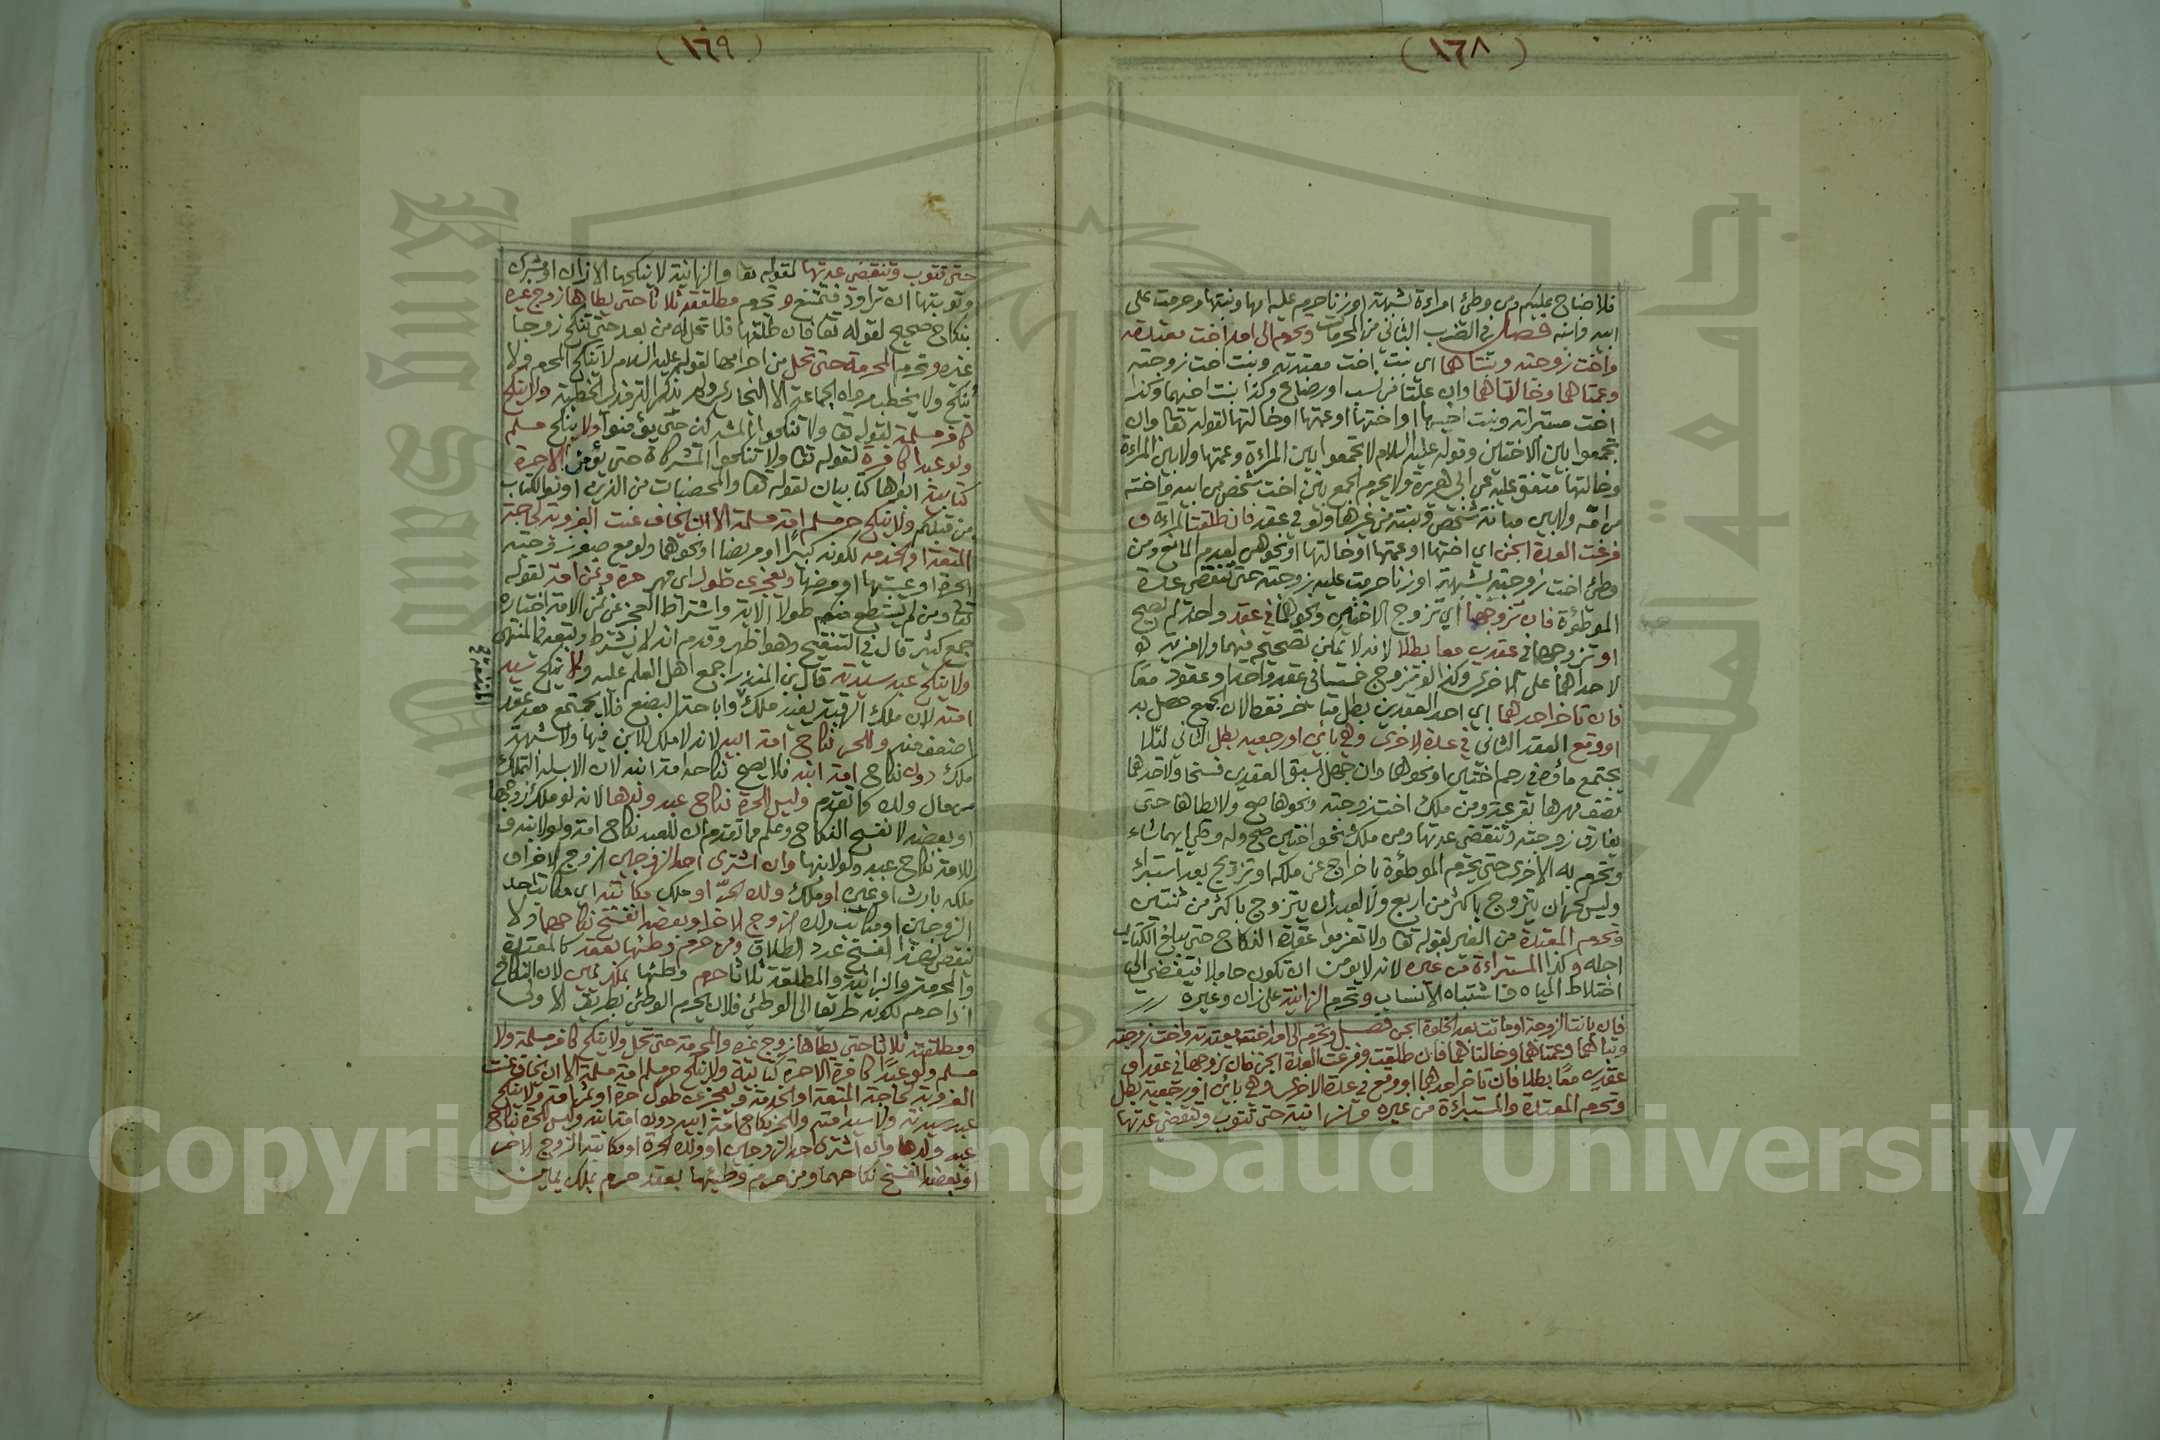 (١٦٨)
فلا جناح عليكم ومن وطئ امراءة بشبهة او زنا حرم عليه امها وبنتها وحرمت على
ابيه وابنه فصل في الضرب الثاني من المحرمات وتحرم الى امد اخت معتدته
واخت زوجته وبنتاهما اي بنت اخت معتدته وبنت اخت زوجته
وعمتاهما وخالتاهما وان علتا من نسب او رضاع وكذا بنت اخيهما وكذا
اخت مستبراته وبنت اخيها او اختها او عمتها او خالتها لقوله تعا وان
تجمعوا بين الاختين وقوله عليه السلام لا تجمعوا بين المراءة وعمتها ولا بين المراءة
وخالتها متفق عليه عن ابى هريرة ولا يحرم الجمع بين اخت شخص من ابيه واخته
من امه ولا بين مبانة شخص وبنته من غيرها ولو في عقد فان طلقت المراءة و
فرغت العدة ابحن اي اختها او عمتها او خالتها او نحوهن لعدم المانع ومن
وطئ اخت زوجته بشبهة او زنا حرمت عليه زوجته حتى تنقضي عدة
الموطؤة فان تزوجهما اي تزوج الاختين ونحوهما في عقد واحد لم يصح
او تزوجهما في عقدين معا بطلا لانه لا يمكن تصحيحه فيهما ولا مزية
لاحداهما على الاخرى وكذا لو تزوج خمسا في عقد واحد او عقود معا
فان تاخر احدهما اي احد العقدين بطل متاخر فقط لان الجمع حصل به
او وقع العقد الثاني في عدة الاخرى وهي بائن او رجعية بطل الثاني لئلا
يجتمع ماؤه في رحم اختين او نحوهما وان جهل اسبق العقدين فسخا ولاحداهما
نصف مهرها بقرعة ومن ملك اخت زوجته ونحوها صح ولا يطاها حتى
يفارق زوجته وتنقضي عدتها ومن ملك نحو اختين صح وله وطى ايهما شاء
وتحرم به الاخرى حتى يحرم الموطؤة باخراج عن ملكه او تزويج بعد استبراء
وليس لحر ان يتزوج باكثر من اربع ولا لعبد ان يتزوج باكثر من ثنتين
وتحرم المعتدة من الغير لقوله تعا ولا تعزموا عقدة النكاح حتى يبلغ الكتاب
اجله وكذا المستبراءة من غيره لانه لا يومن ان تكون حاملا فيفضي الى
اختلاط المياه واشتباه الانساب وتحرم الزانية على زان وغيره
فان بانت الزوجة او ماتت بعد الخلوة ابحن فصل وتحرم الى امد اخت معتدته واخت زوجته
وبنتاهما وعمتاهما وخالتاهما فان طلقت وفرغت العدة ابحن فان تزوجهما في عقد او
عقدين معًا بطلا فان تاخر احدهما او وقع في عدة الاخرى وهي بائن او رجعية بطل
وتحرم المعتدة والمستبراءة من غيره وزانية حتى تتوب وتنقضي عدتها
(١٦٩)
حتى تتوب وتنقضي عدتها لقوله تعا والزانية لا ينكحها الا زان او مشرك
وتوبتها ان تراود فتمتنع وتحرم مطلقته ثلاثا حتى يطاها زوج غيره
بنكاح صحيح لقوله تعا فان طلقها فلا تحل له من بعد حتى تنكح زوجا
غيره وتحرم المحرمة حتى تحل من احرامها لقوله عليه السلام لا ينكح المحرم ولا
يُنكح ولا يخطب رواه الجماعة الا البخاري ولم يذكر الترمذي الخطبة ولا ينكح
كافر مسلمة لقوله تعا ولا تنكحوا المشركين حتى يؤمنوا ولا ينكح مسلم
ولو عبدا كافرة لقوله تعا ولا تنكحوا المشركات حتى يؤمن الا حرة
كتابية ابواها كتابيان لقوله تعا والمحصنات من الذين اوتوا الكتاب
من قبلكم ولا ينكح حر مسلم امة مسلمة الا ان يخاف عنت العزوبة لحاجة
المتعة او الخدمة لكونه كبيرًا او مريضا او نحوهما ولو مع صغر زوجته
الحرة او غيبتها او مرضها ويعجز عن طول اي مهر حرة وثمن امة لقوله
تعا ومن لم يستطع منكم طولا الاية واشتراط العجز عن ثمن الامة اختاره
جمع كثير قال في التنقيح وهو اظهر وقدم انه لا يشترط وتبعه في المنتهى
ولا ينكح عبد سيدته قال بن المنذر اجمع اهل العلم عليه ولا ينكح سيد
امته لان ملك الرقبة يفيد ملك واباحة البضع فلا يجتمع معه عقد
اضعف منه وللحر نكاح امة ابيه لانه لا ملك للابن فيها ولا شبهة
ملك دون نكاح امة ابنه فلا يصح نكاحه امة ابنه لان الاب له التملك
من مال ولده كما تقدم وليس للحرة نكاح عبد ولدها لانه لو ملك زوجها
او بعضه لانفسخ النكاح وعلم مما تقدم ان للعبد نكاح امة ولو لابنه و
للامة نكاح عبد ولو لابنها وان اشترى احد الزوجين الزوج الاخر او
ملكه بارث او غيره او ملك ولده الحرّ او ملك مكاتبه اي مكاتب احد
الزوجين او مكاتب ولده الزوج الاخر او بعضه انفسخ نكاحهما ولا
ينقص بهذا الفسخ عدد الطلاق ومن حرم وطئها بعقد كالمعتدة
والمحرمة والزانية والمطلقة ثلاثا حرم وطئها بملك يمين لان النكاح
اذا حرم لكونه طريقا الى الوطئ فلان يحرم الوطئ بطريق الاولى
ومطلقته ثلاثا حتى يطاها زوج غيره والمحرمة حتى تحل ولا ينكح كافر مسلمة ولا
مسلم ولو عبدًا كافرة الا حرة كتابية ولا ينكح حر مسلم امة مسلمة الا ان يخاف عنت
العزوبة لحاجة المتعة او الخدمة ويعجز عن طول حرة او ثمن امة ولا ينكح
عبد سيدته ولا سيد امته وللحر نكاح امة ابيه دون امة ابنه وليس للحرة نكاح
عبد ولدها وان اشترى احد الزوجين او ولده الحرة او مكاتبه الزوج الاخر
او بعضه انفسخ نكاحهما ومن حرم وطئها بعقد حرم بملك يمين
جامعة الملك سعود
King Saud University
Copyright © King Saud University